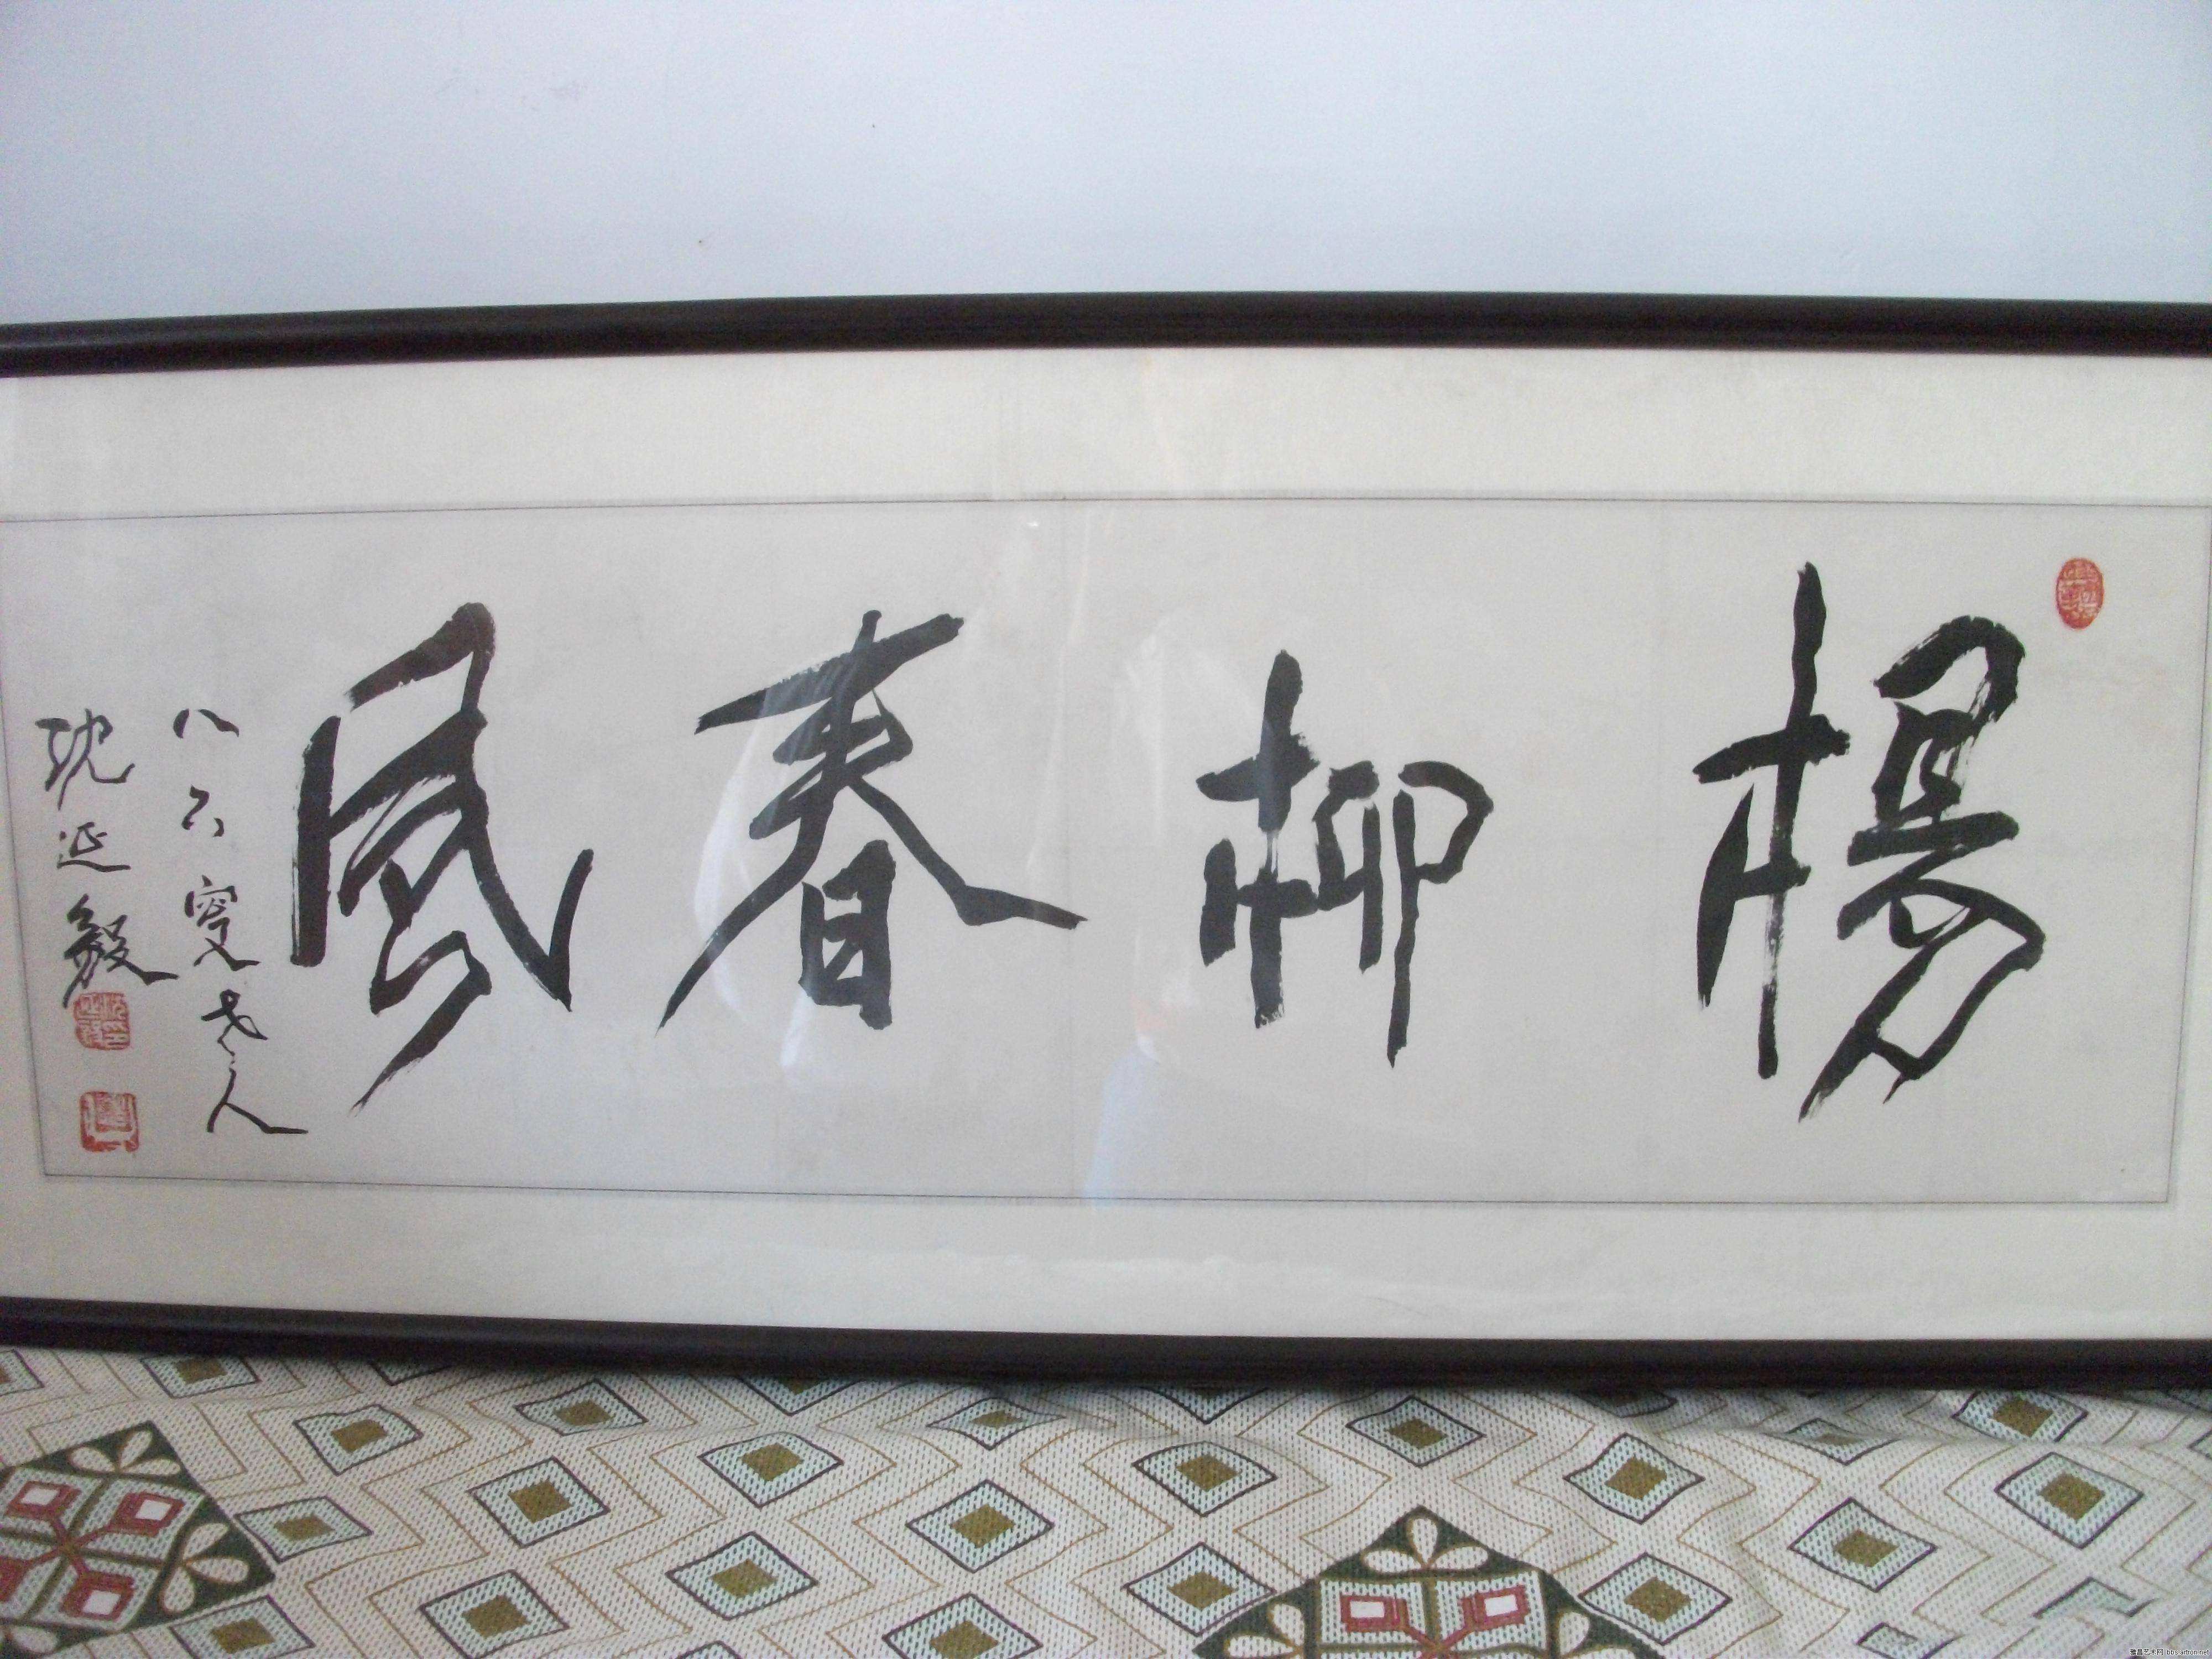 楊柳春風
八六叟老人
沈延毅
雅昌艺术网 bbs.artron.net